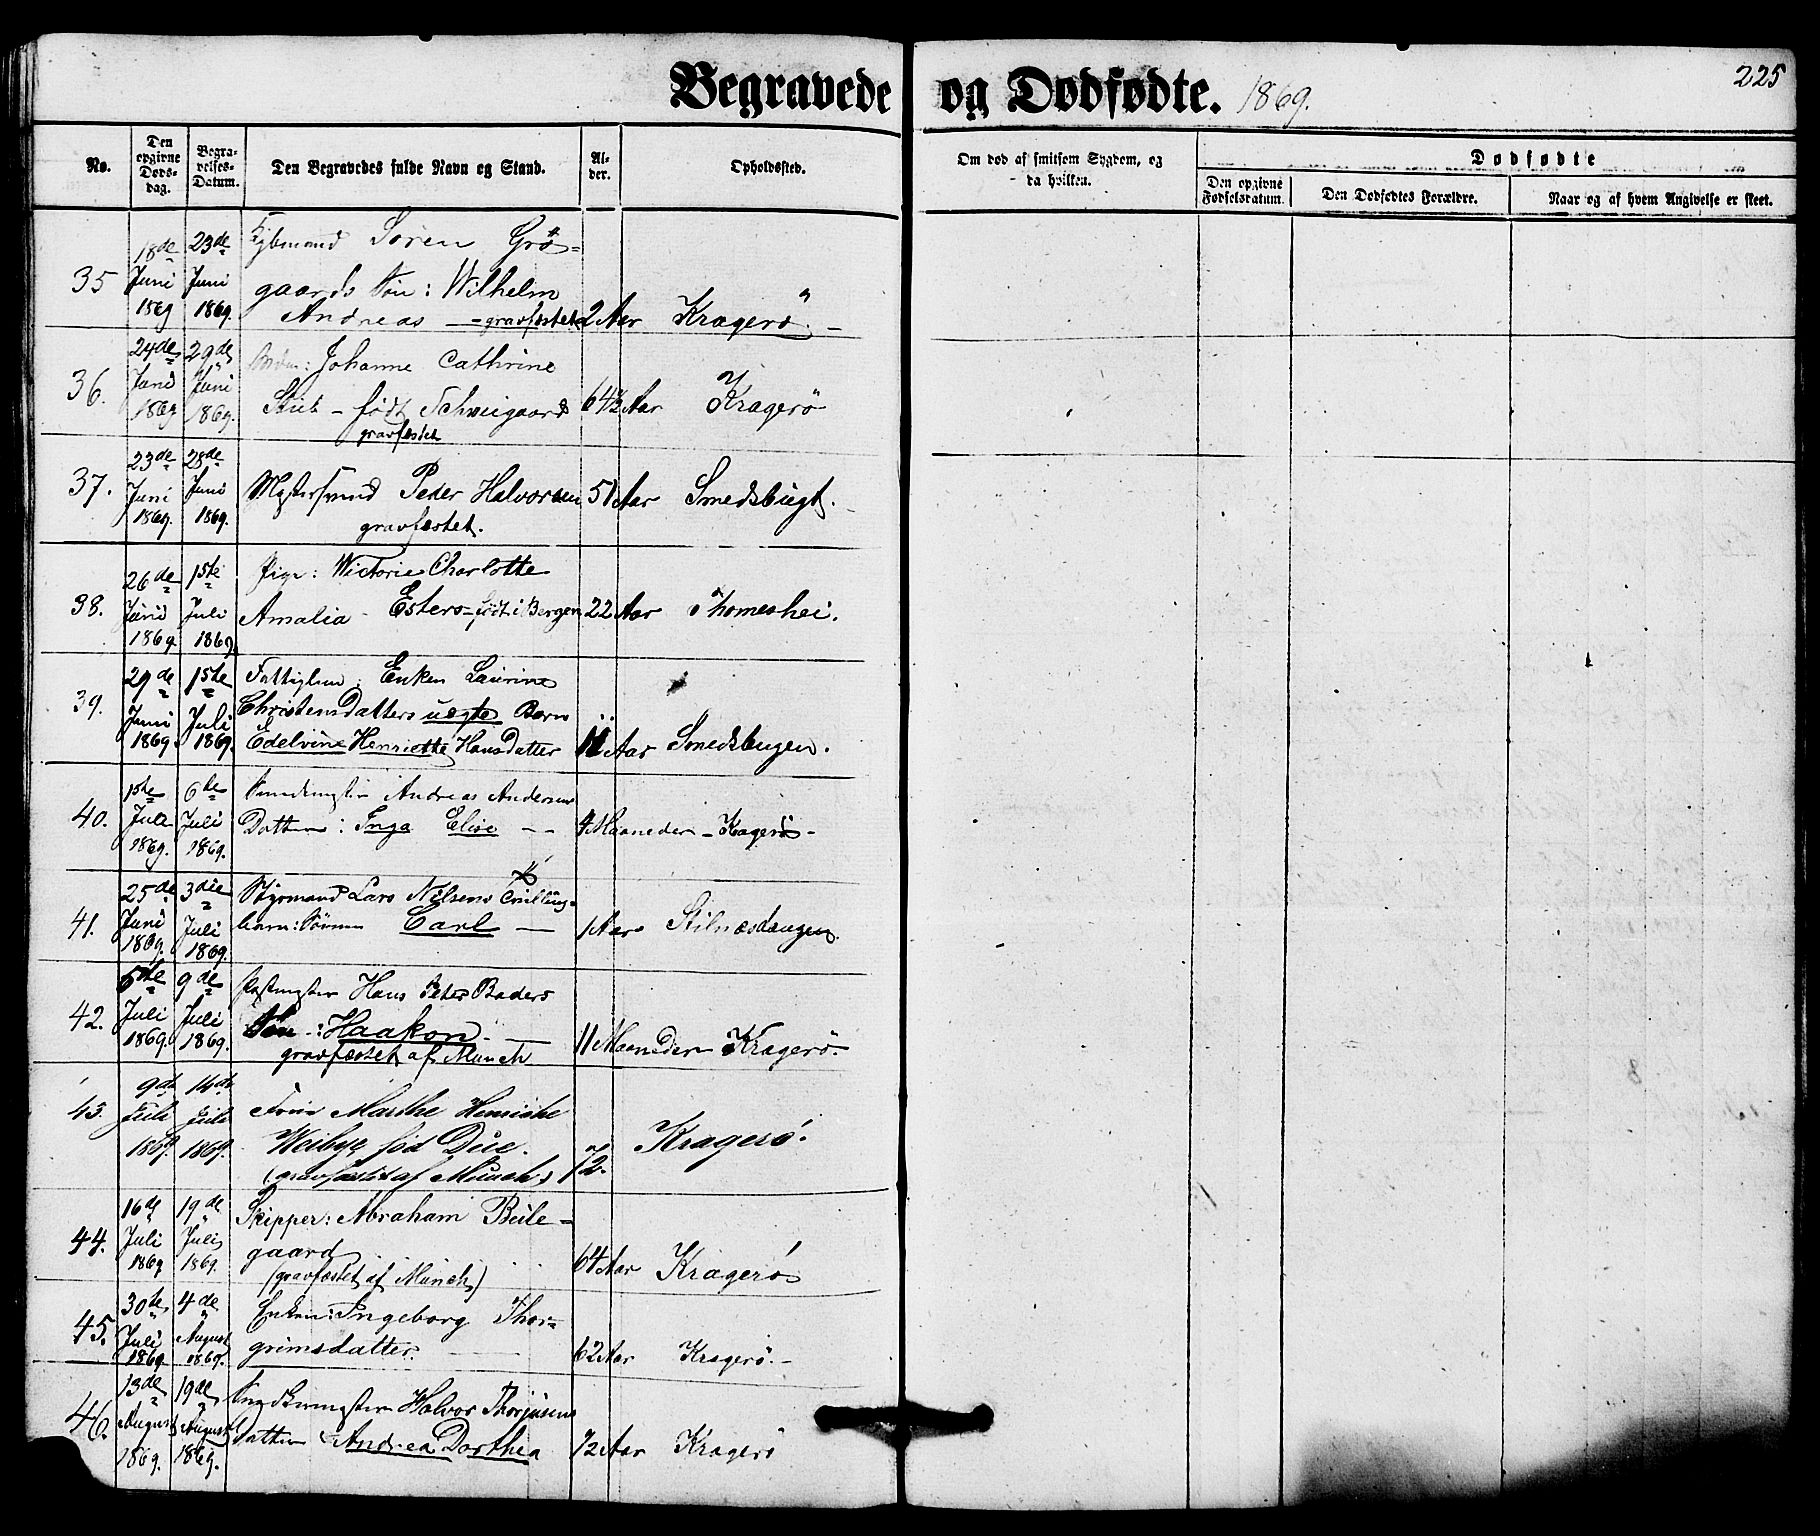 Begravede og Dødfødte. 1869.
225
No.
Den opgivne Døds-dag.
Begra-velses-Datum.
Den Begravedes fulde Navn og Stand.
Al-der.
Opholdssted.
Om død af smitsom Sygdom, og da hvilken.
Dødfødte
Den opgivne Fødselsdatum.
Den Dødfødtes Forældre.
Naar og af hvem Angivelse er skeet.
35 18de Juni 1869 23de Juni 1869. Søren Grø-
gaards Søn: Wilhelm
Andreas — gravfæstet 2 Aar Kragerø. –
36. 24de Juni 1869 29de Juni 1869. Johanne Cathrine
– født Schweigaard 64½ Aar Kragerø
gravfæstet
37. 23de Juni 1869. 28de Juni 1869. Peder Halvorsen 51 Aar Smedsbugt.
gravfæstet.
38. 26de Juni 1869. 1ste Juli 1869. Pige: Wictorie Charlotte
Amalia – Esters – født i Bergen 22 Aar Thomeshei.
39. 29de Juni 1869. 1ste Juli 1869. Fattiglem: Enken Laurine
Christensdatters uægte Barn
Edelvine Henriette Hansdatter 11 Aar Smedsbugen.
40. 1ste Juli 1869. 6te Juli 1869. Andreas Andersens
Datter: Inga Elise – – 4 Maaneder – Kragerø –
41. 25de Juni 1869. 3die Juli 1869. Styrmand Lars Nilsens Tvilling-
barn: Sønnen Carl — 1 Aar
42. 5te Juli 1869. 9de Juli 1869. Hans Peter Baders
Søn – : Haakon – —
gravfæstet af Münch 11 Maaneder Kragerø.
43. 9de Juli 1869. 14de Juli 1869. Frue Marthe Henriette
Weibye fød Due.
(gravfæstet af Münch) 72. Kragerø.
44. 16de Juli 1869 19de Juli 1869. Skipper: Abraham Beile-
gaard
(gravfæstet af Münch) 64 Aar Kragerø
45. 30te Juli 1869 4de August 1869. Enken: Ingeborg Thor-
grimsdatter. — 62 Aar Kragerø. –
46. 13de August 1869. 19de August 1869. Halvor Thorjusens
Datter Andrea Dorthea ½ Aar Kragerø